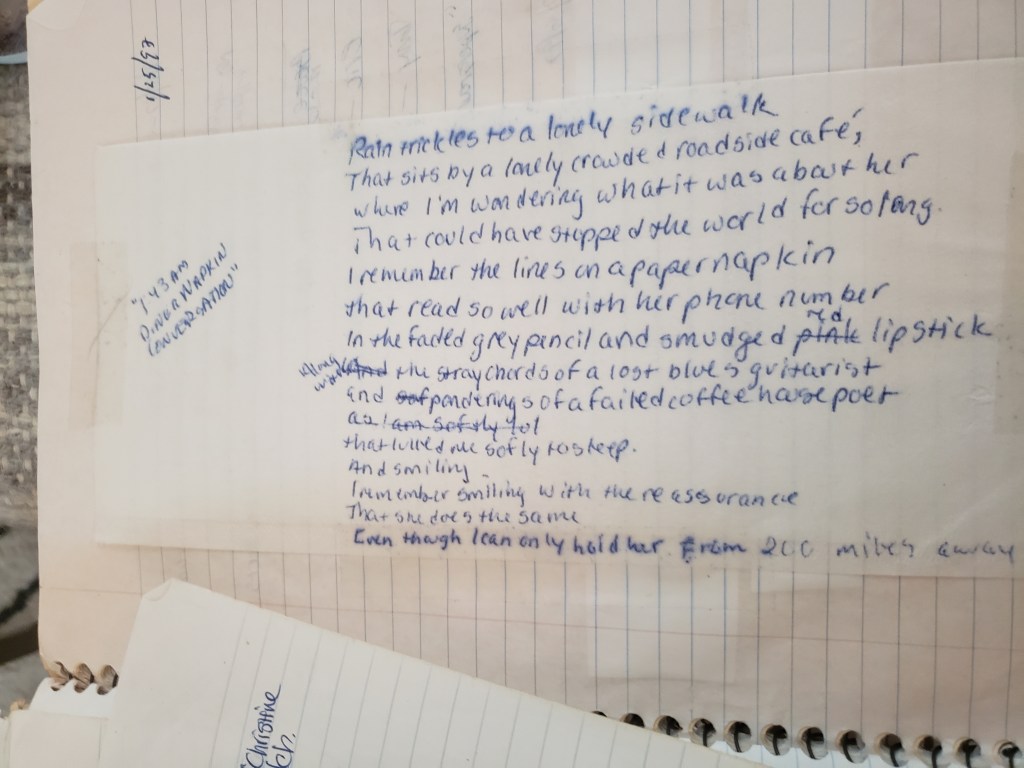 1/25/97
"1 43 AM
DINER NAPKIN
CONVERSATION"
Rain trickles to a lonely sidewalk
That sits by a lonely crowded roadside café,
where I'm wondering what it was about her
That could have stopped the world for so long.
I remember the lines on a paper napkin
that read so well with her phone number
In the faded grey pencil and smudged pink red lipstick
Along with And the stray chords of a lost blues guitarist
and of ponderings of a failed coffee house poet
as I am softly lol
that lulled me softly to sleep.
And smiling
I remember smiling with the reassurance
That she does the same
Even though I can only hold her from 200 miles away
Christine
ch.